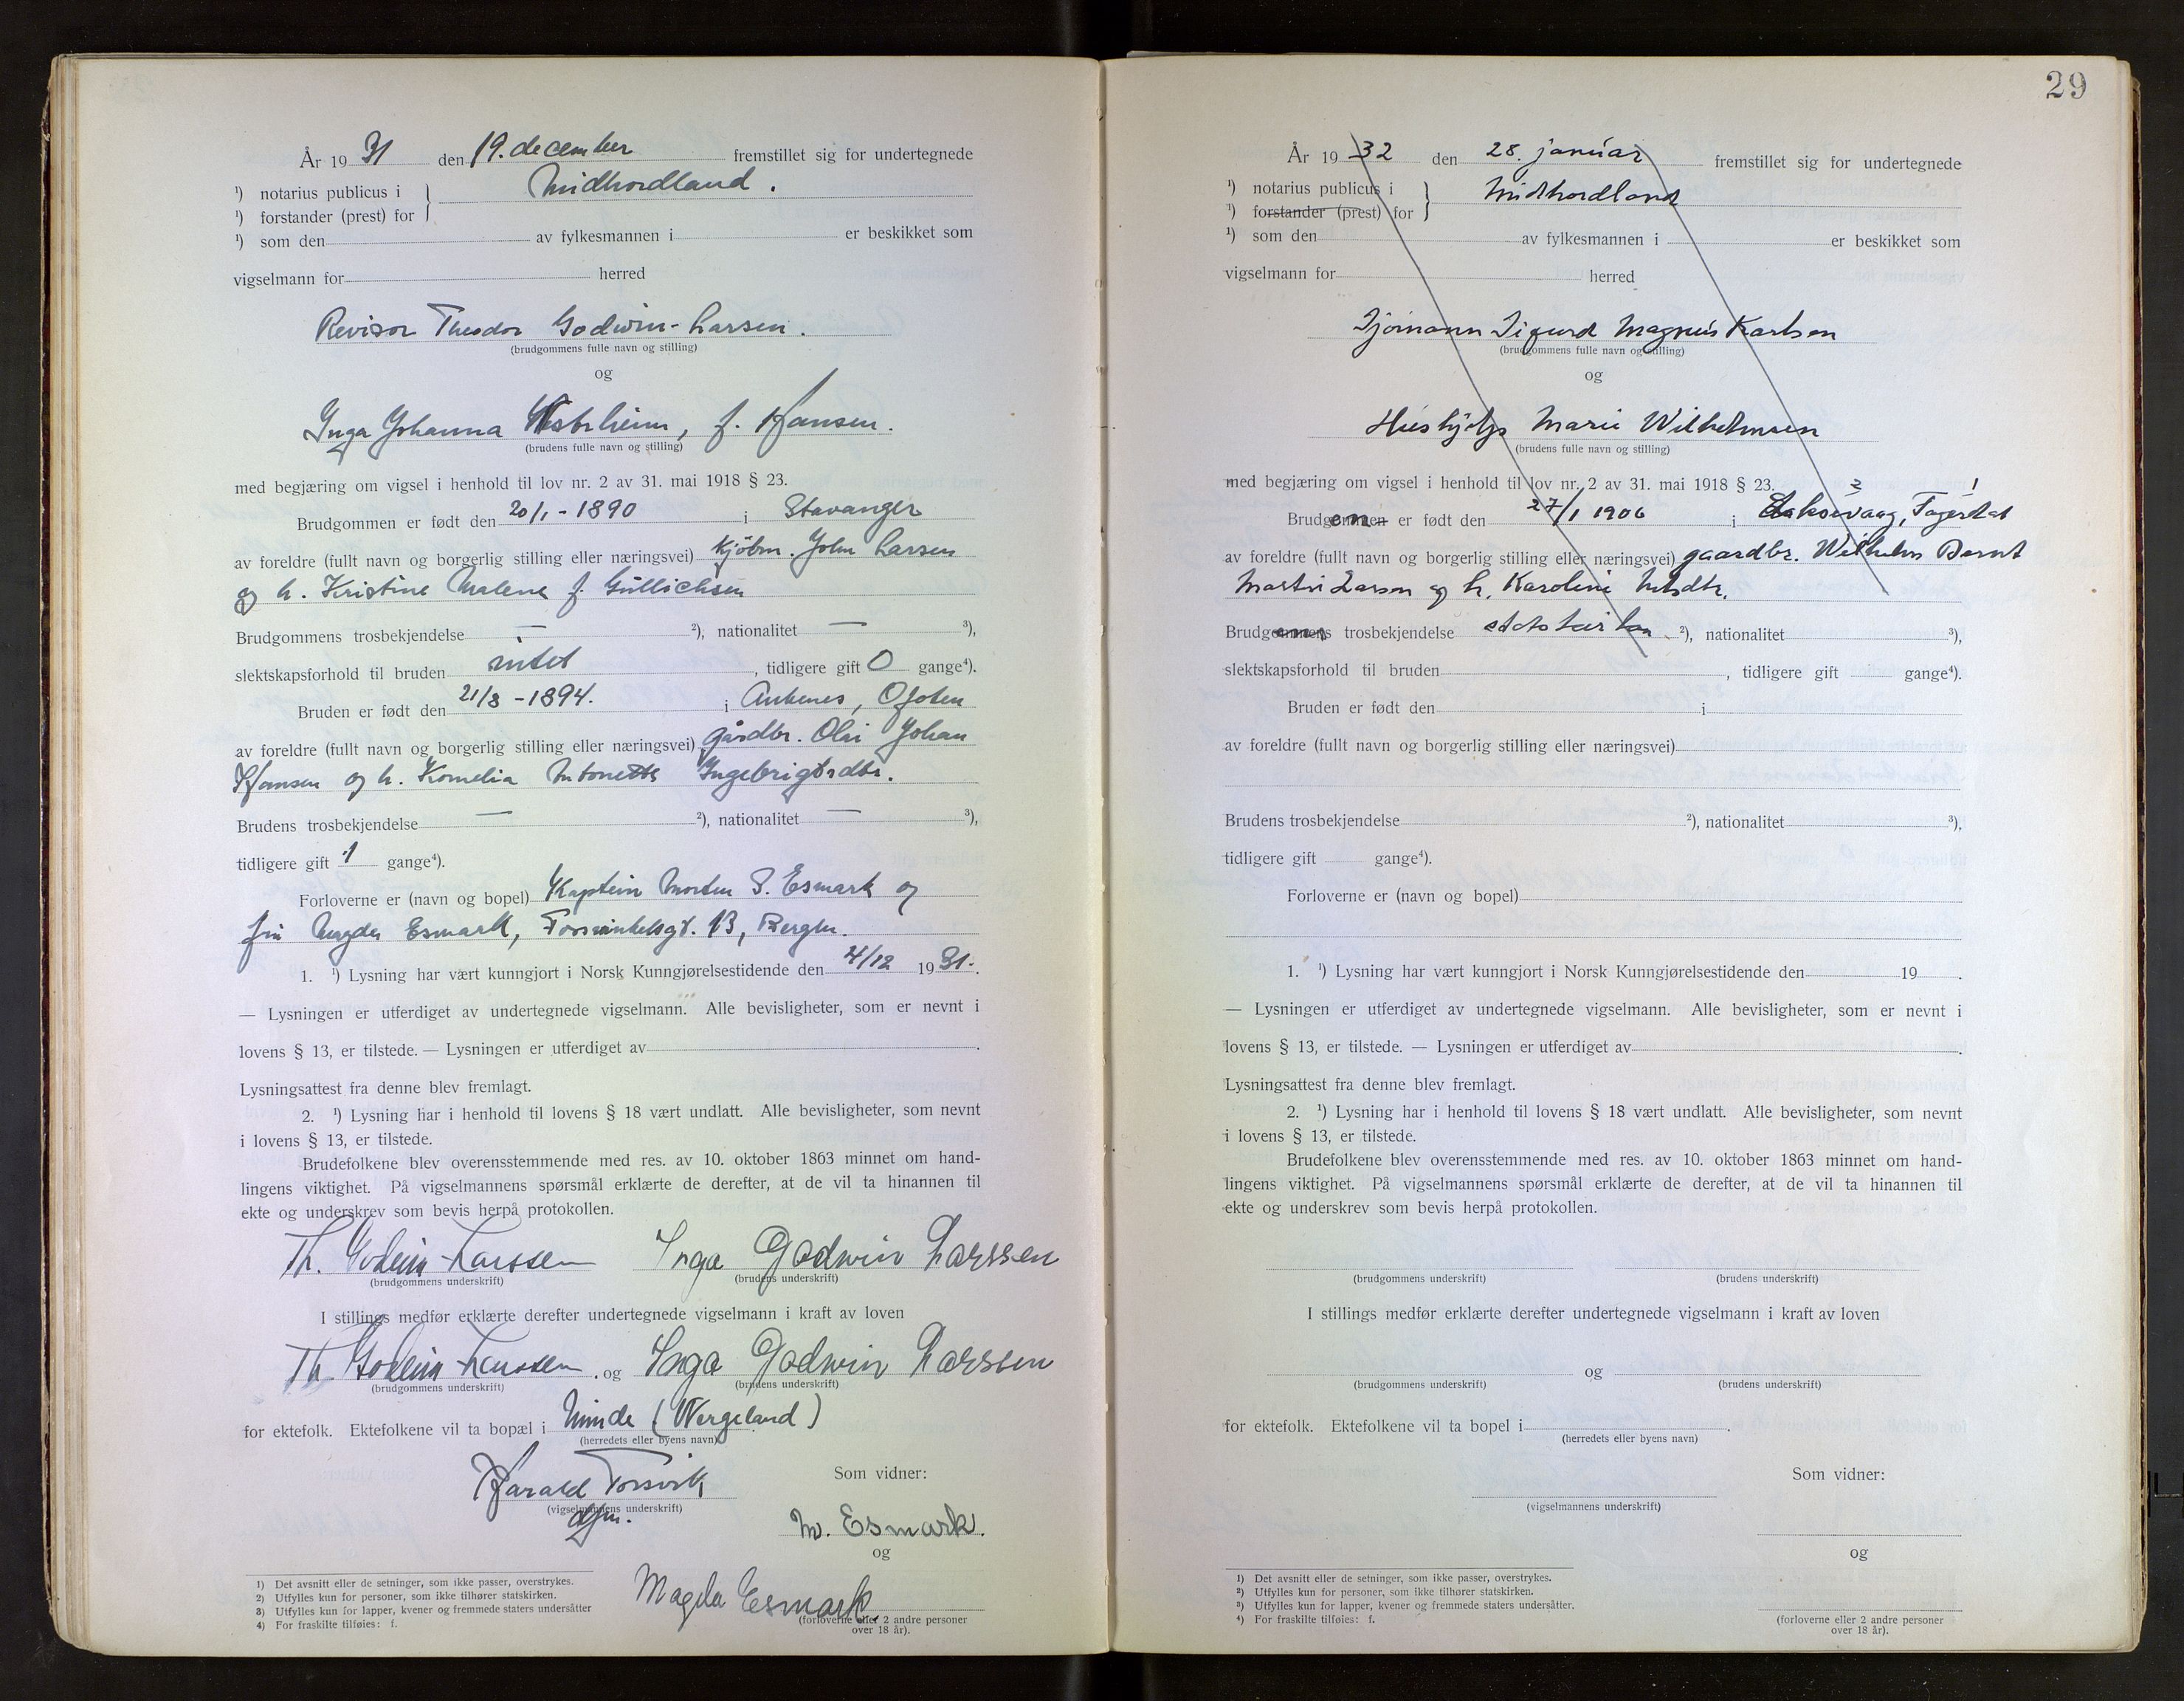 År 19 31 den 19. december fremstillet sig for undertegnede
¹) notarius publicus i
Midhordland.
¹) forstander (prest) for
¹) som den av fylkesmannen i er beskikket som
vigselmann for herred
Revisor Theodor Godwin-Larsen.
(brudgommens fulle navn og stilling)
og
Inga Johanna Westrheim, f. Hansen.
(brudens fulle navn og stilling)
med begjæring om vigsel i henhold til lov nr. 2 av 31. mai 1918 § 23.
Brudgommen er født den 20/1 - 1890 i Stavanger
av foreldre (fullt navn og borgerlig stilling eller næringsvei) kjøbm. John Larsen
og h. Kristine Malene f. Gullichsen
Brudgommens trosbekjendelse — ²), nationalitet — ³),
slektskapsforhold til bruden intet, tidligere gift 0 gange⁴).
Bruden er født den 21/8 - 1894. i Ankenes, Ofoten
av foreldre (fullt navn og borgerlig stilling eller næringsvei) gårdbr. Olai Johan
Hansen og h. Kornelia Antonette Ingebrigtsdtr.
Brudens trosbekjendelse — ²), nationalitet — ³),
tidligere gift 1 gange⁴).
Forloverne er (navn og bopel) Kaptein Morten S. Esmark og
fru Magda Esmark, 13, Bergen.
1. ¹) Lysning har vært kunngjort i Norsk Kunngjørelsestidende den 4/12 19 31.
— Lysningen er utferdiget av undertegnede vigselmann. Alle bevisligheter, som er nevnt i
lovens § 13, er tilstede. — Lysningen er utferdiget av .
Lysningsattest fra denne blev fremlagt.
2. ¹) Lysning har i henhold til lovens § 18 vært undlatt. Alle bevisligheter, som nevnt
i lovens § 13, er tilstede.
Brudefolkene blev overensstemmende med res. av 10. oktober 1863 minnet om hand-
lingens viktighet. På vigselmannens spørsmål erklærte de derefter, at de vil ta hinannen til
ekte og underskrev som bevis herpå protokollen.
Th. Godwin Larssen Inga Godwin Larssen
(brudgommens underskrift) (brudens underskrift)
I stillings medfør erklærte derefter undertegnede vigselmann i kraft av loven
Th. Godwin Larssen. og Inga Godwin Larssen
(brudgommens underskrift) (brudens underskrift)
for ektefolk. Ektefolkene vil ta bopæl i Minde (Wergeland)
(herredets eller byens navn)
Harald Torsvik
(vigselmannens underskrift)
dfm.
Som vidner:
M. Esmark.
og
Magda Esmark.
(forloverne eller 2 andre personer
over 18 år).
1) Det avsnitt eller de setninger, som ikke passer, overstrykes.
2) Utfylles kun for personer, som ikke tilhører statskirken.
3) Utfylles kun for lapper, kvener og fremmede staters undersåtter
4) For fraskilte tilføies: f.
29
År 19 32 den 28. januar fremstillet sig for undertegnede
¹) notarius publicus i
Midhordland
¹) forstander (prest) for
¹) som den av fylkesmannen i er beskikket som
vigselmann for herred
Sjømann Sigurd Magnus Karlsen
(brudgommens fulle navn og stilling)
og
Hushjelp Marie Wilhelmsen
(brudens fulle navn og stilling)
med begjæring om vigsel i henhold til lov nr. 2 av 31. mai 1918 § 23.
2 1
Brudgommen er født den 27/1 1906 i Laksevaag,
av foreldre (fullt navn og borgerlig stilling eller næringsvei) gaardbr. Wilhelm Bernt
Martin Larsen og h. Karoline
Brudgommens trosbekjendelse statskirken ²), nationalitet ³),
slektskapsforhold til bruden , tidligere gift gange⁴).
Bruden er født den i
av foreldre (fullt navn og borgerlig stilling eller næringsvei)
Brudens trosbekjendelse ²), nationalitet ³),
tidligere gift gange⁴).
Forloverne er (navn og bopel)
1. ¹) Lysning har vært kunngjort i Norsk Kunngjørelsestidende den 19 .
— Lysningen er utferdiget av undertegnede vigselmann. Alle bevisligheter, som er nevnt i
lovens § 13, er tilstede. — Lysningen er utferdiget av .
Lysningsattest fra denne blev fremlagt.
2. ¹) Lysning har i henhold til lovens § 18 vært undlatt. Alle bevisligheter, som nevnt
i lovens § 13, er tilstede.
Brudefolkene blev overensstemmende med res. av 10. oktober 1863 minnet om hand-
lingens viktighet. På vigselmannens spørsmål erklærte de derefter, at de vil ta hinannen til
ekte og underskrev som bevis herpå protokollen.
(brudgommens underskrift) (brudens underskrift)
I stillings medfør erklærte derefter undertegnede vigselmann i kraft av loven
og
(brudgommens underskrift) (brudens underskrift)
for ektefolk. Ektefolkene vil ta bopel i .
(herredets eller byens navn)
Som vidner:
(vigselmannens underskrift)
og
(forloverne eller 2 andre personer
over 18 år).
1) Det avsnitt eller de setninger, som ikke passer, overstrykes.
2) Utfylles kun for personer, som ikke tilhører statskirken.
3) Utfylles kun for lapper, kvener og fremmede staters undersåtter.
4) For fraskilte tilføies: f.